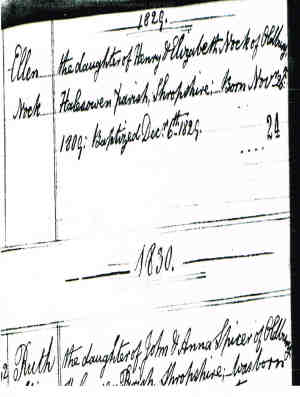 1829.
Ellen the daughter of Henry & Elizabeth Nock of Oldbury
Nock Halesowen Parish, Shropshire; Born Novr 26th
1809: Baptized Decr 6th 1829. 24
1830.
Ruth the daughter of John & Anna Spicer of Oldbury
Parish, Shropshire; was born